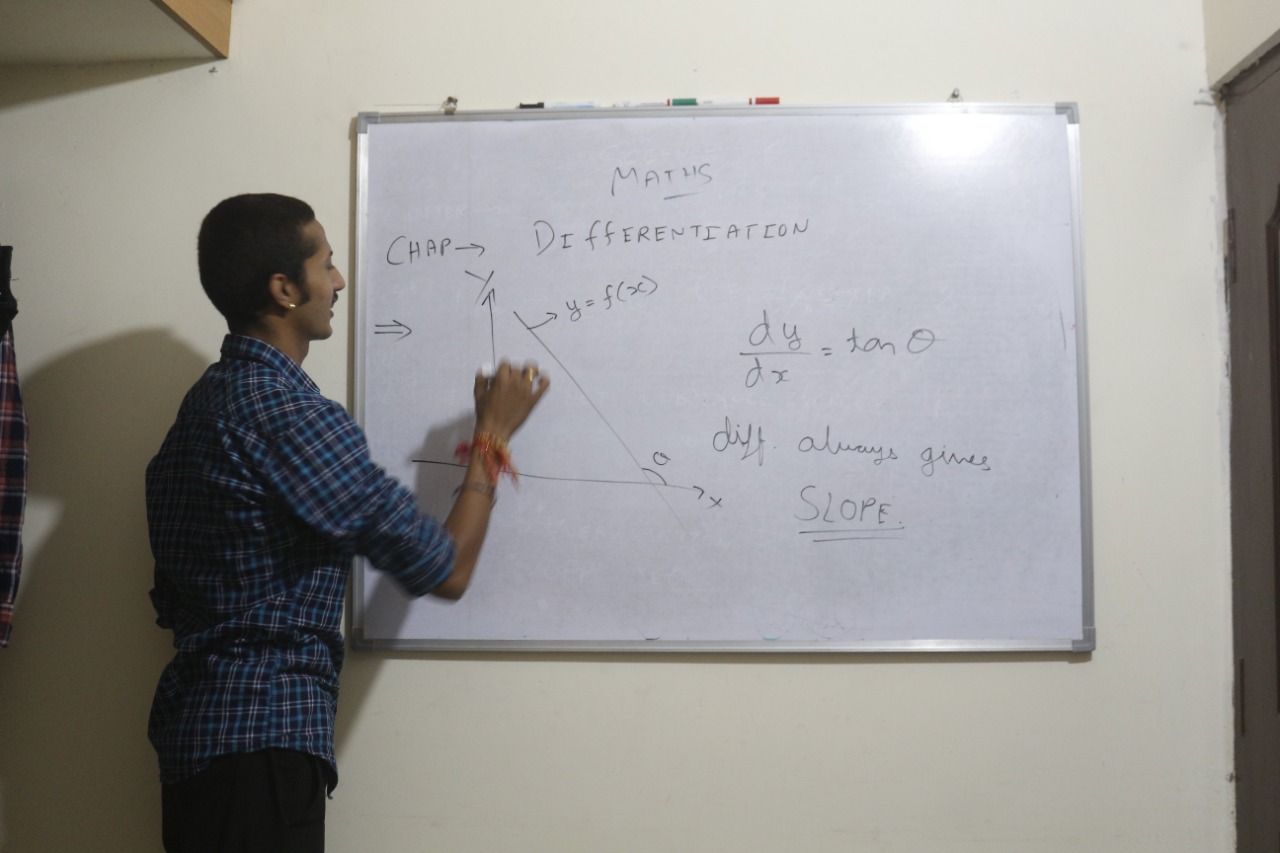 MATHS
CHAP → DIffERENTIATION
Y
⇒
y = f(x)
dy/dx = tan θ
θ
x
diff. always gives
SLOPE.